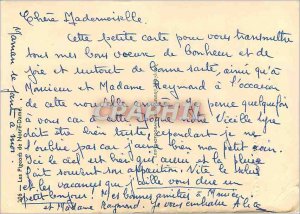 Chère Mademoiselle.
Cette petite carte pour vous transmettre
tous mes bons voeux de Bonheur et de
joie et surtout de bonne santé, ainsi qu'à
Monsieur et Madame Raymond à l'occasion
de cette nouvelle pense quelquefois
à vous car à cette époque Vieille lyre
doit être bien triste, cependant je ne
l'oublie pas car j'aime bien mon petit coin
Ici le ciel est bien gris encore et la pluie
fait souvent son apparition! Vite le soleil
et les vacances que j'aille vous dire un
petit bonjour! Mes bonnes amitiés à Monsieur
et Madame Raymond. Je vous embrasse Alice
Maman se joint à moi.
Les Pignoufs de Noré-Durand
CPAPHIL.com